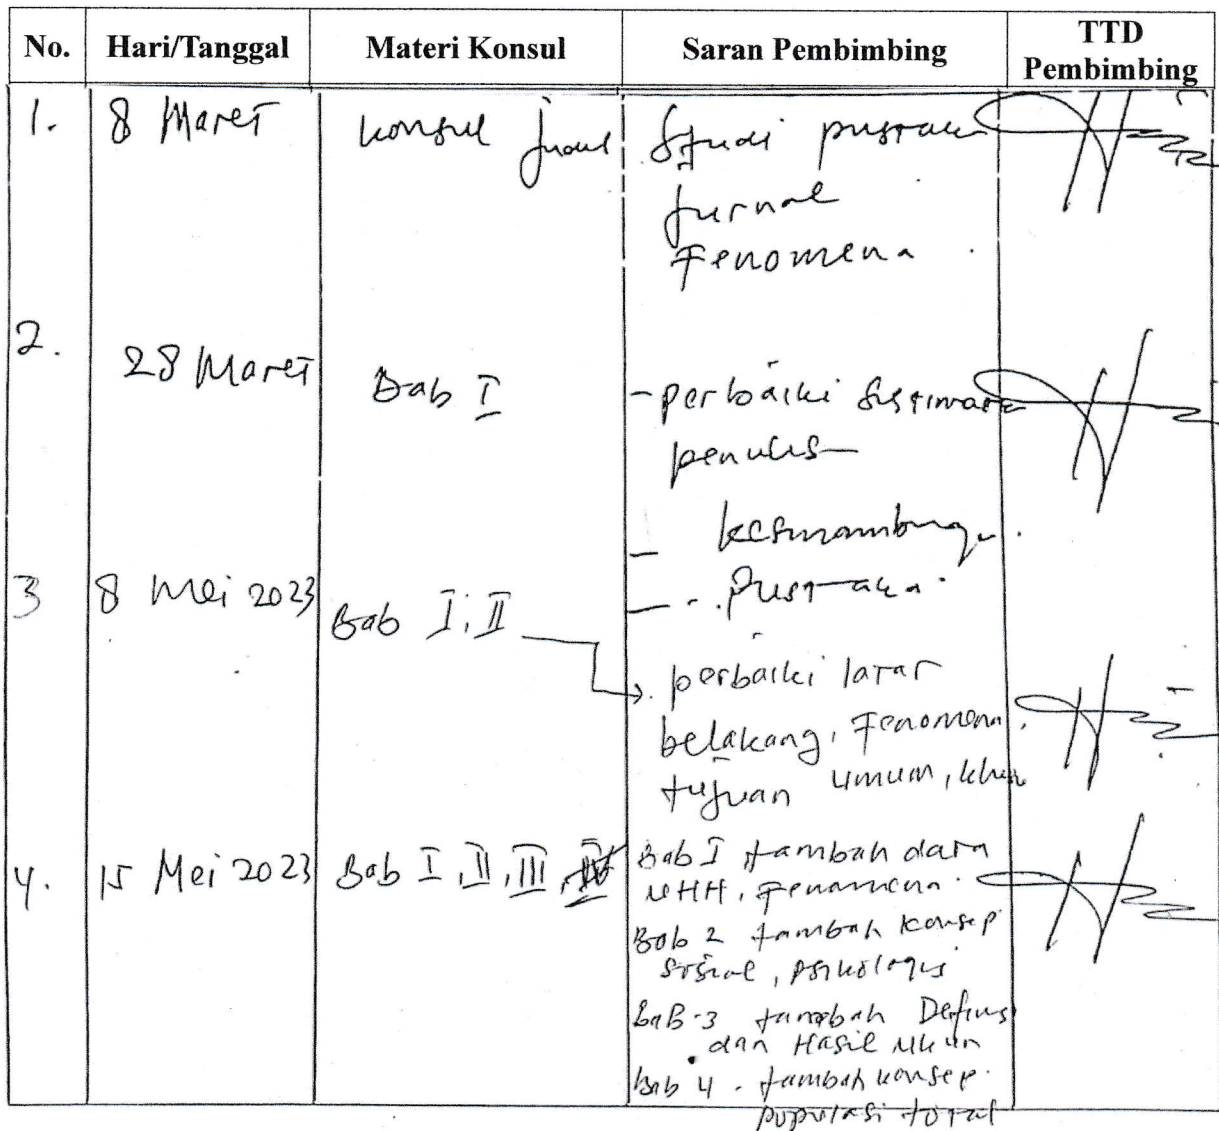 No. Hari/Tanggal Materi Konsul Saran Pembimbing TTD Pembimbing
1. 8 Maret konsul judul Studi pustaka
jurnal
Fenomena
2. 28 Maret Bab I - perbaiki
penulis
-
3 8 Mei 2023 Bab I, II - Pustaka
perbaiki latar
belakang, Fenomena,
tujuan umum, khus
4. 15 Mei 2023 Bab I, II, III, IV Bab I tambah data
Fenomena
Bab 2 tambah konsep
sosial, psikologis
BaB 3 tambah Defins
dan Hasil ukur
Bab 4 tambah konsep
populasi total